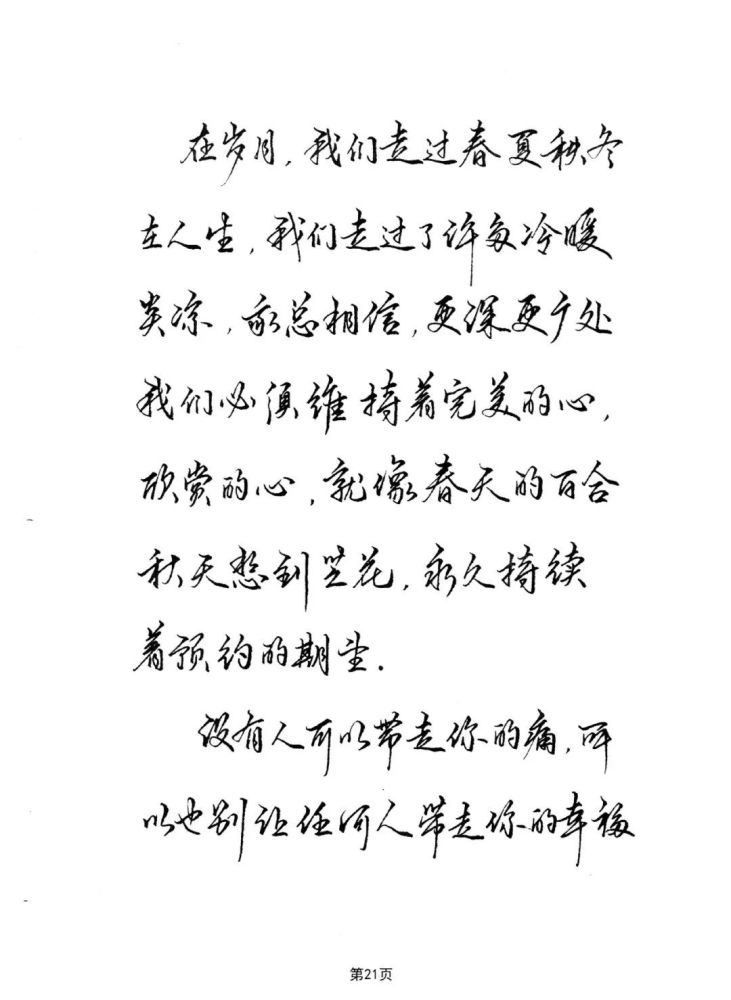 在岁月，我们走过春夏秋冬
在人生，我们走过了许多冷暖
炎凉，我总相信，更深更广处
我们必须维持着完美的心，
欣赏的心，就像春天的百合
秋天想到兰花，永久持续
着预约的期望.
没有人可以带走你的痛，所
以也别让任何人带走你的幸福
第21页